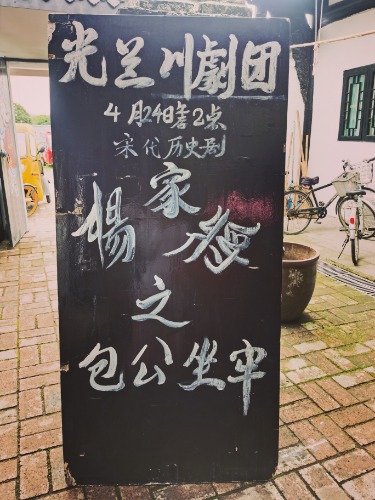 光兰川劇团
4月24日2点
宋代历史剧
楊家
之
包公坐牢